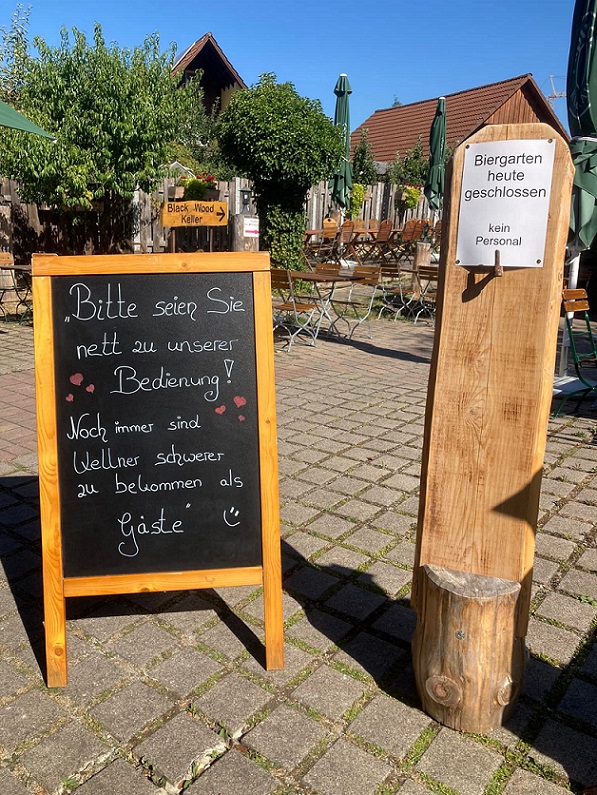 Black Wood
Keller
„Bitte seien Sie
nett zu unserer
Bedienung!
Noch immer sind
Wellner schwerer
zu bekommen als
Gäste"
Biergarten
heute
geschlossen
kein
Personal